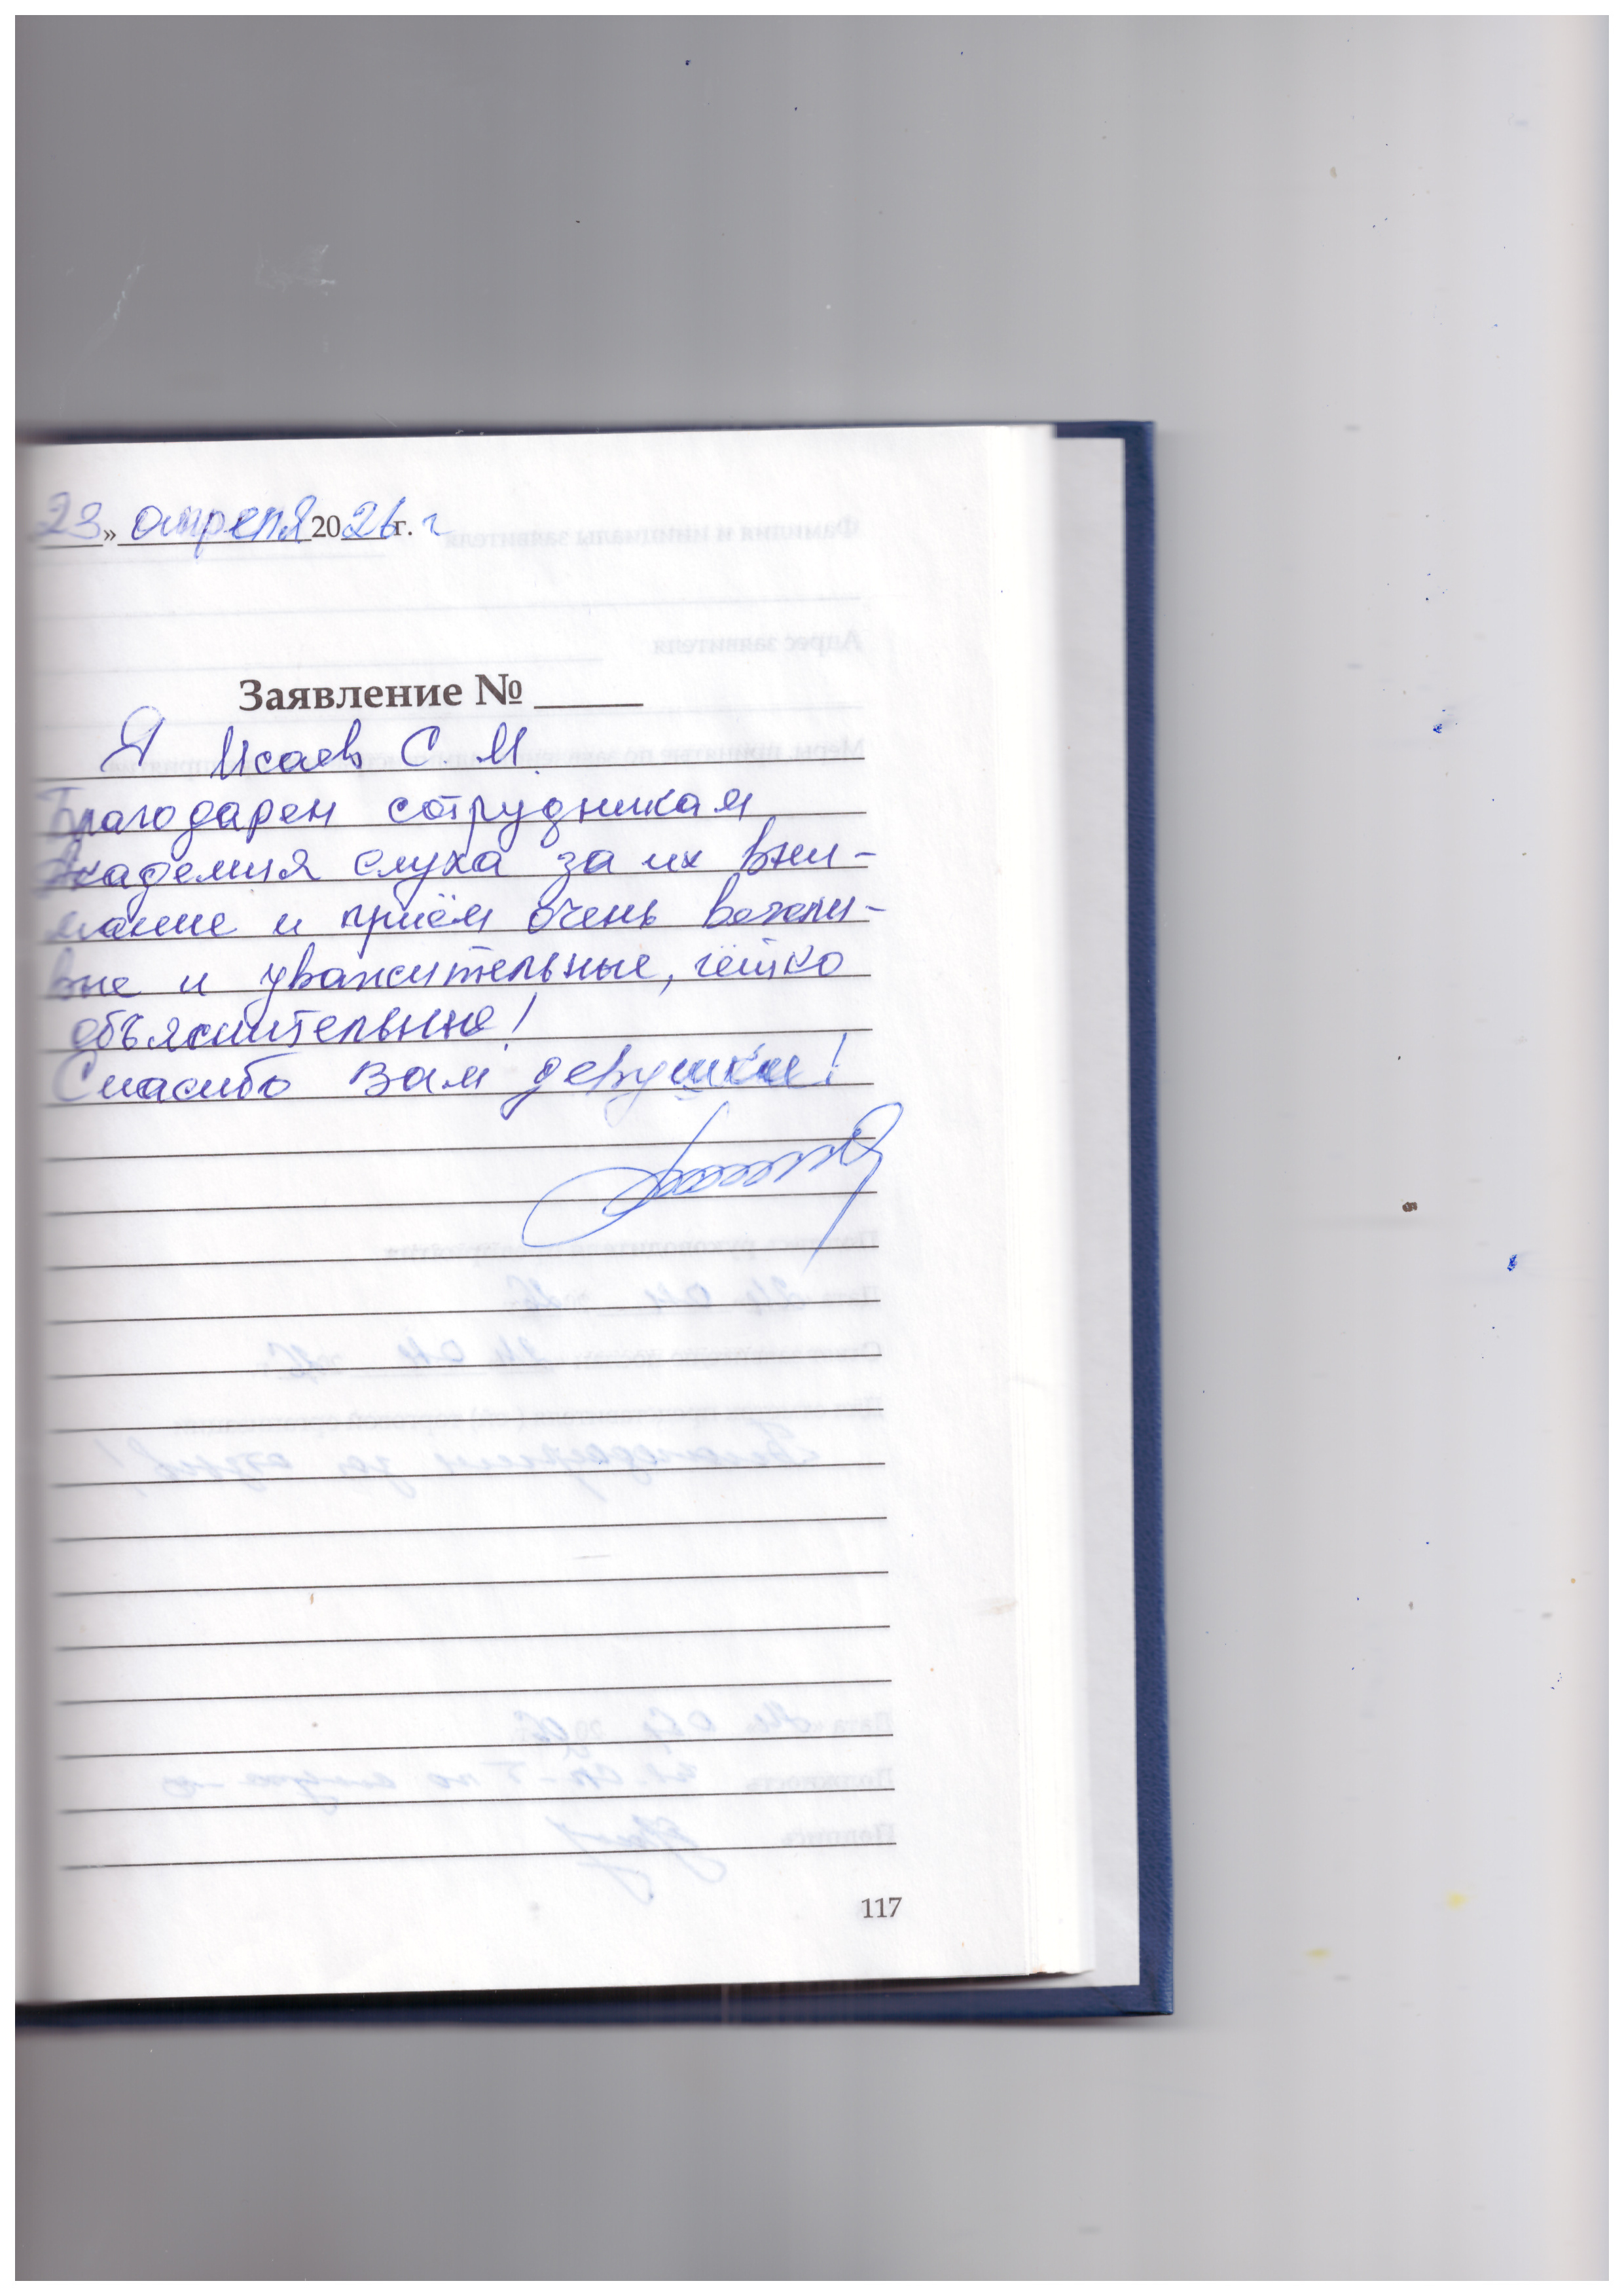 23» апреля 2026 г. г
Заявление №
Я Исаев С. М.
Благодарен сотрудникам
Академия слуха за их вни-
мание и приём очень вежли-
вые и уважительные, чётко
объяснительные!
Спасибо Вам девушки!
117